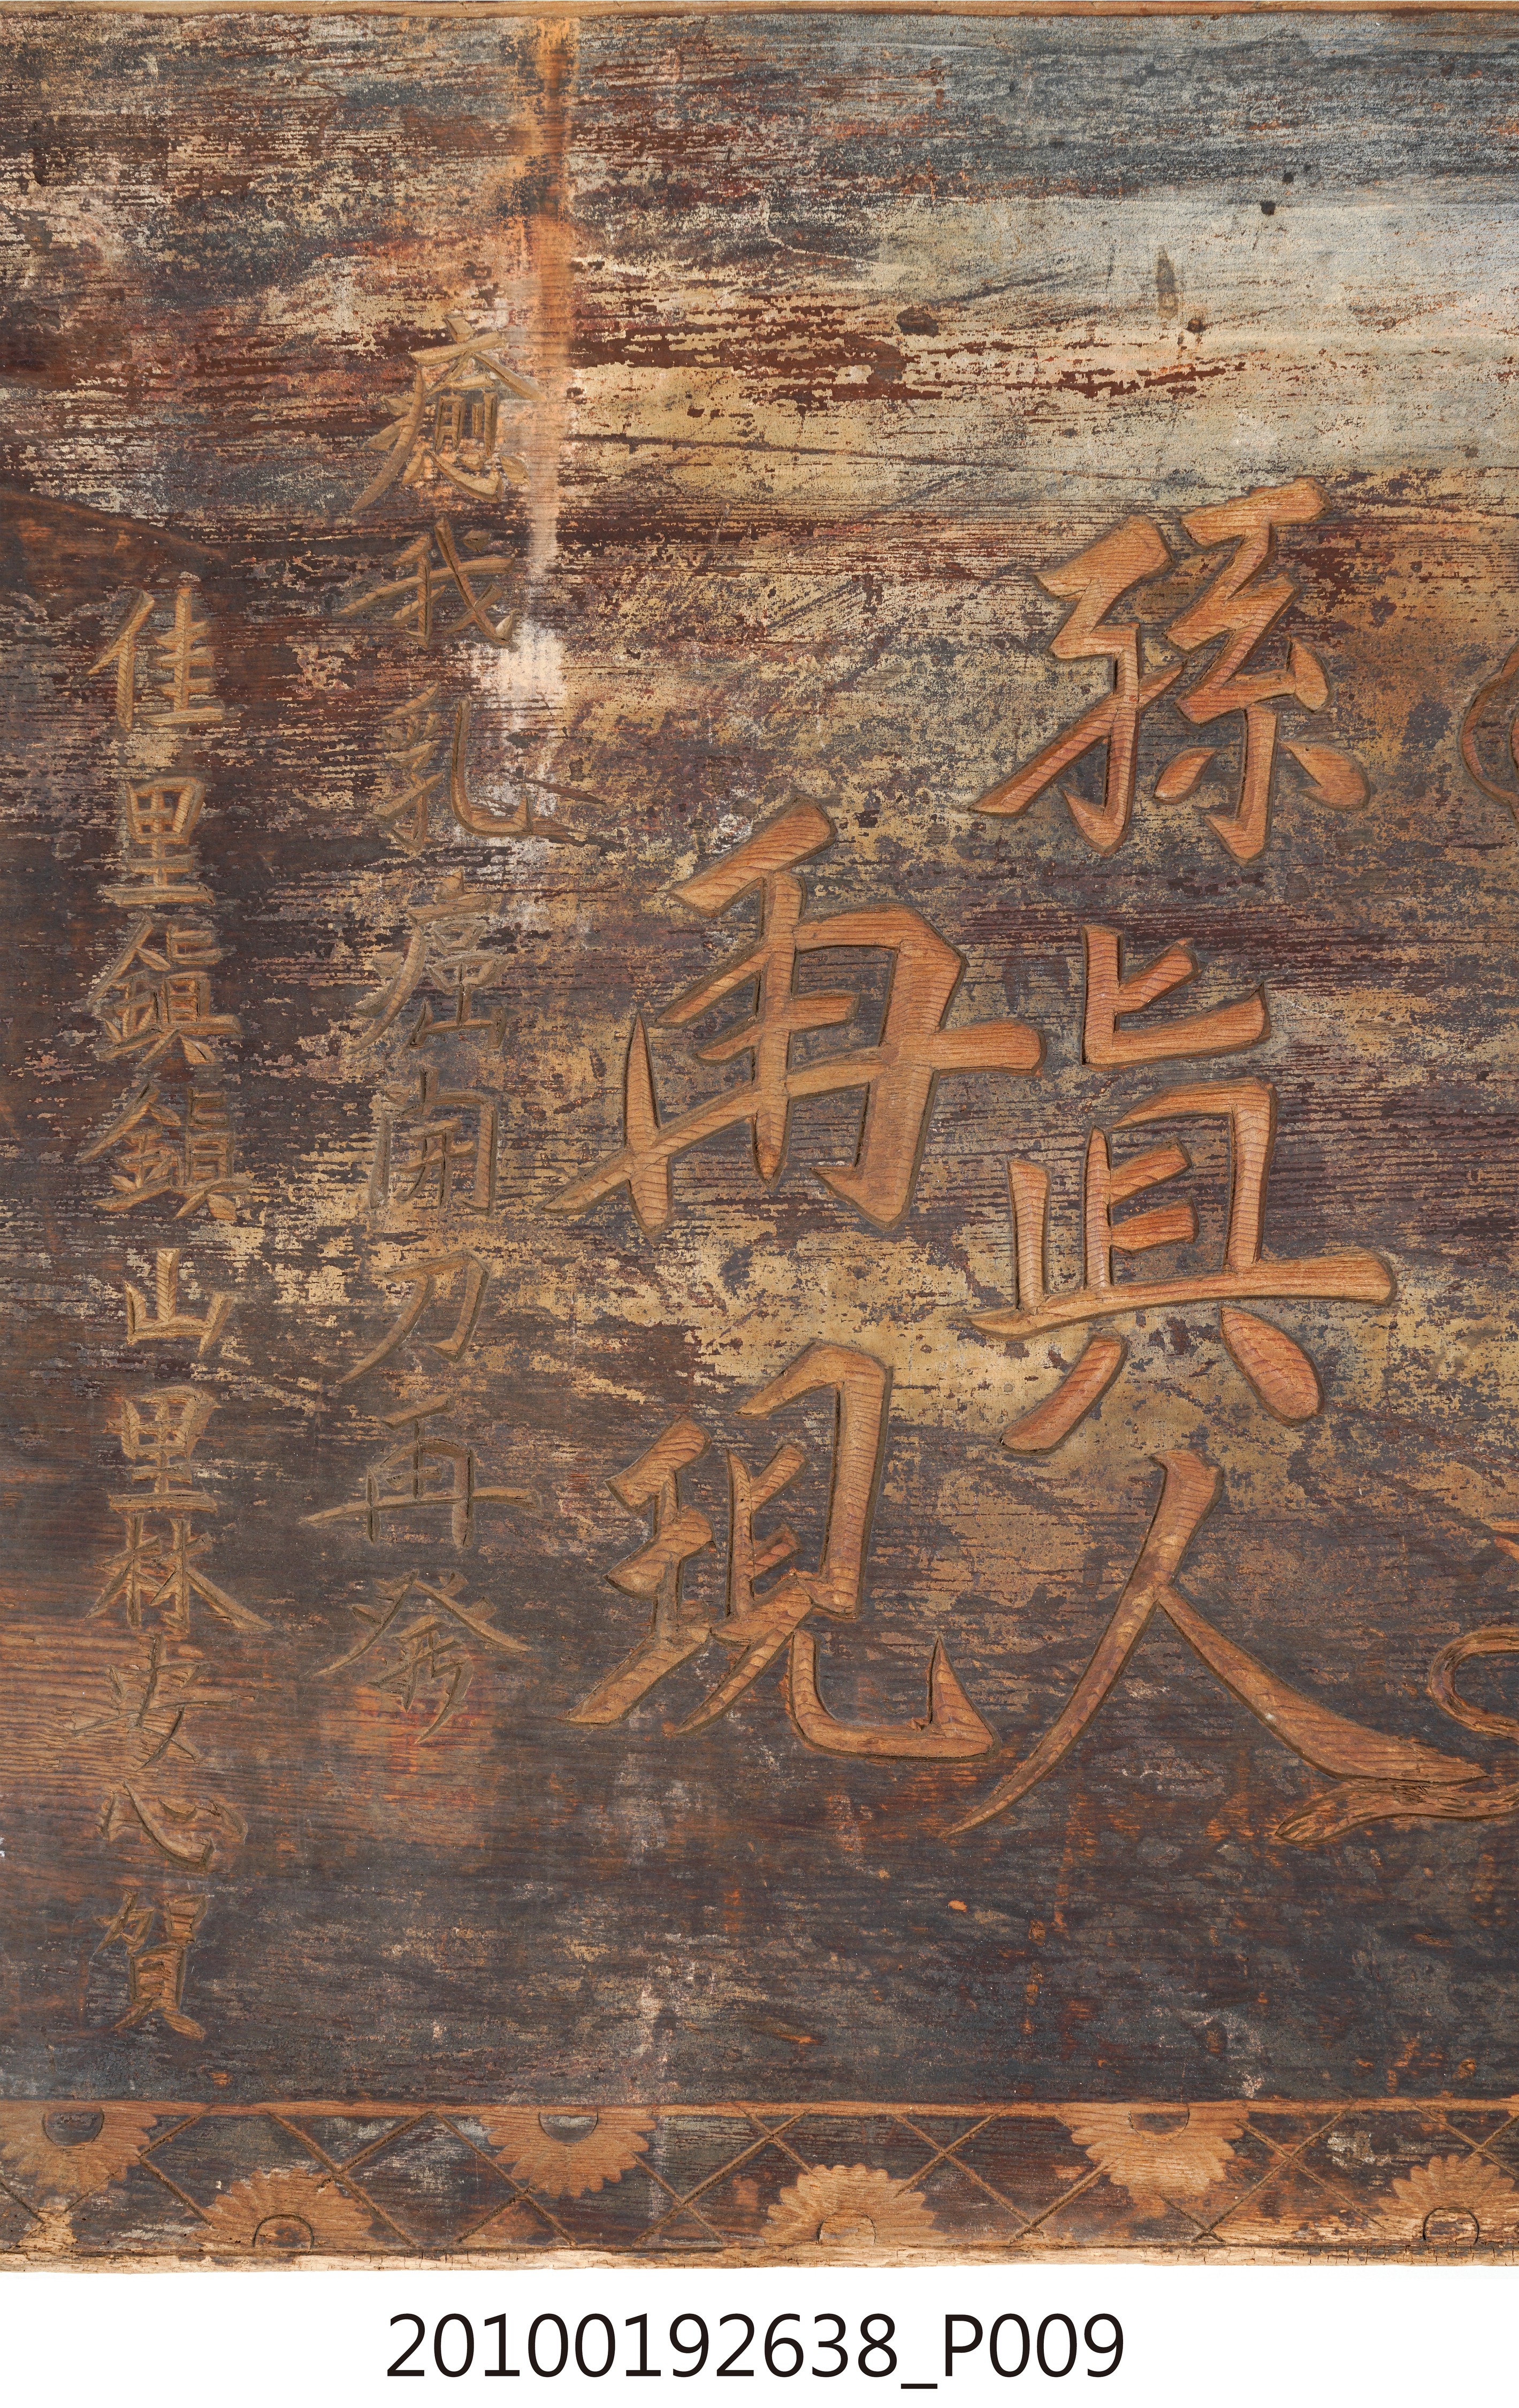 孫眞人
再現
癒我乳癌開刀再発
佳里鎮鎮山里林安心賀
20100192638_P009